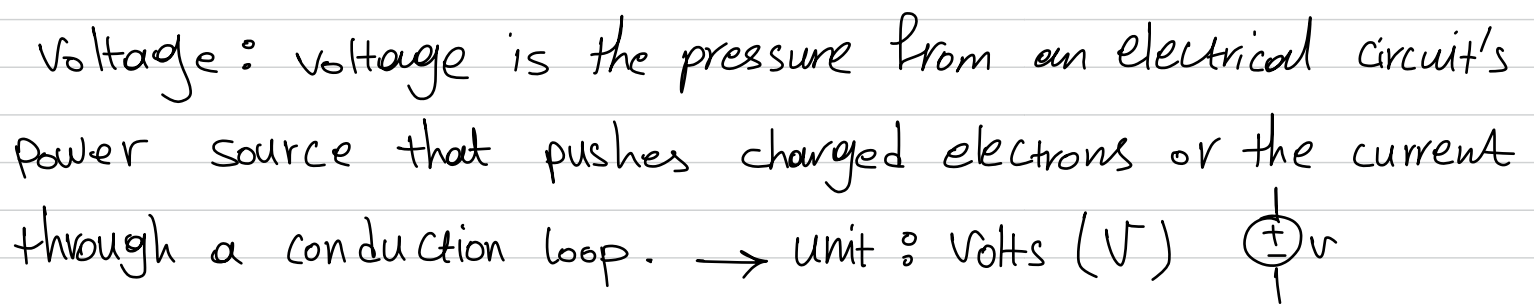 Voltage: voltage is the pressure from an electrical circuit's
power source that pushes charged electrons or the current
through a conduction loop. → unit: Volts (V) + - v